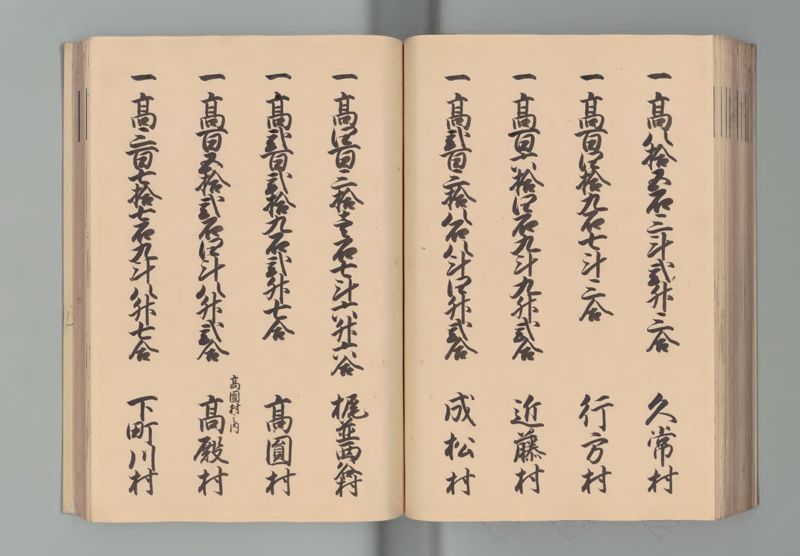 一高八拾五石三斗弐升三合 久常村
一高百四拾九石七斗三合 行方村
一高百六拾四石九斗九升弐合 近藤村
一高弐百三拾八石八斗四升弐合 成松村
一高四百三拾壱石七斗六升六合 梶並西谷村
一高弐百弐拾九石弐升七合 高圓村
高圓村之内
一高百五拾弐石四斗八升弐合 高殿村
一高三百七拾七石九斗八升七合 下町川村